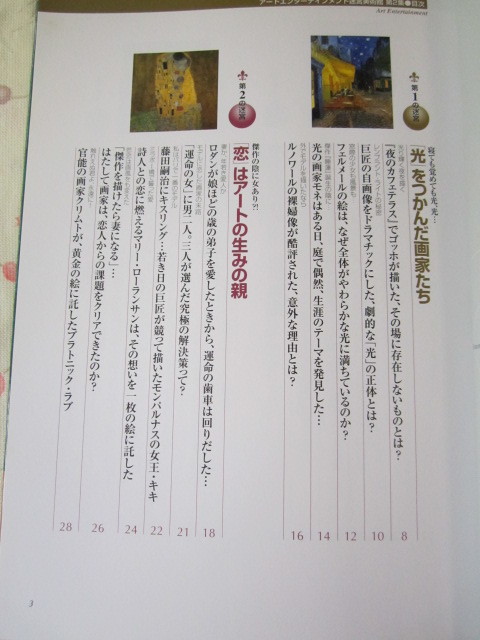 アートエンターテインメント迷宮美術館 第2集●目次
Art Entertainment
第1の迷宮
寝ても覚めても光、光…
「光」をつかんだ画家たち
『夜のカフェテラス』でゴッホが描いた、その場に存在しないものとは? 8
巨匠の自画像をドラマチックにした、劇的な「光」の正体とは? 10
フェルメールの絵は、なぜ全体がやわらかな光に満ちているのか? 12
光の画家モネはある日、庭で偶然、生涯のテーマを発見した… 14
ルノワールの裸婦像が酷評された、意外な理由とは? 16
第2の迷宮
傑作の陰に女あり?!
「恋」はアートの生みの親
ロダンが娘ほどの歳の弟子を愛したときから、運命の歯車は回りだした… 18
「運命の女」に男二人。三人が選んだ究極の解決策って? 21
藤田嗣治にキスリング…若き日の巨匠が競って描いたモンパルナスの女王・キキ 22
詩人との恋に燃えるマリー・ローランサンは、その想いを一枚の絵に託した 24
「傑作を描けたら妻になる」…
はたして画家は、恋人からの課題をクリアできたのか? 26
官能の画家クリムトが、黄金の絵に託したプラトニック・ラブ 28
3